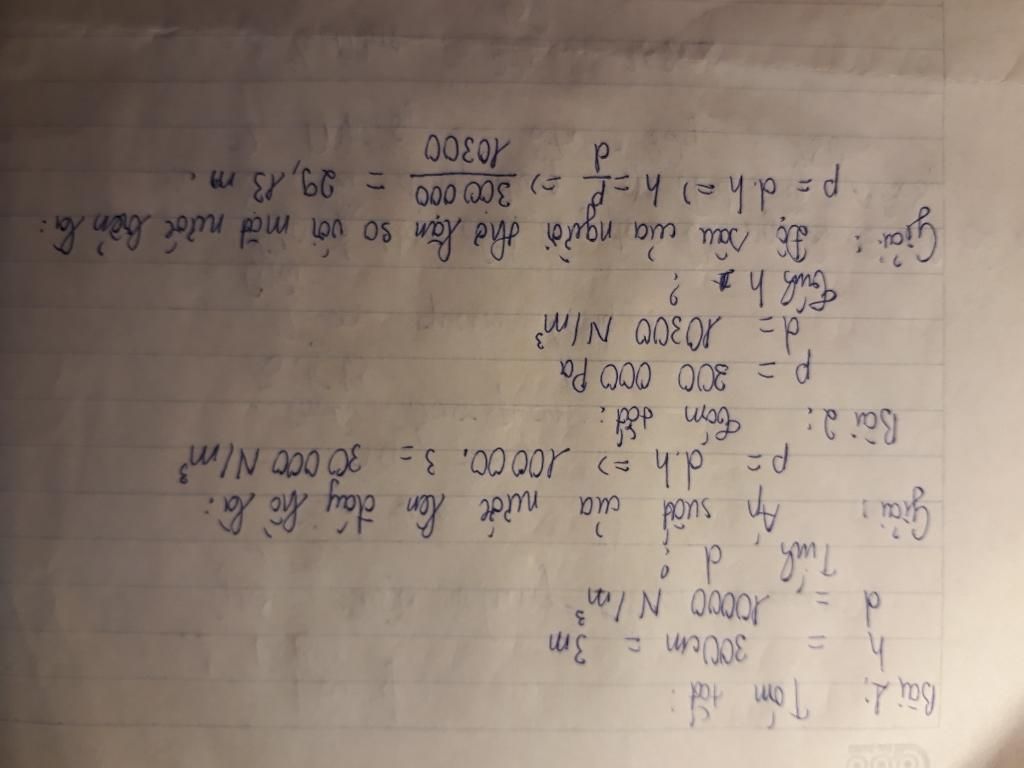 Bài 1: Tóm tắt:
h = 300cm = 3m
d = 10000 N/m³
Tính d:
Giải: Áp suất của nước lên đáy hồ là:
p = d.h => 10000.3 = 30000 N/m³
Bài 2: Tóm tắt:
p = 300 000 Pa
d = 10300 N/m³
Tính h ?
Giải: Độ sâu của người thợ lặn so với mặt nước biển là:
p = d.h => h = p/d => 300 000/10300 = 29,13 m.